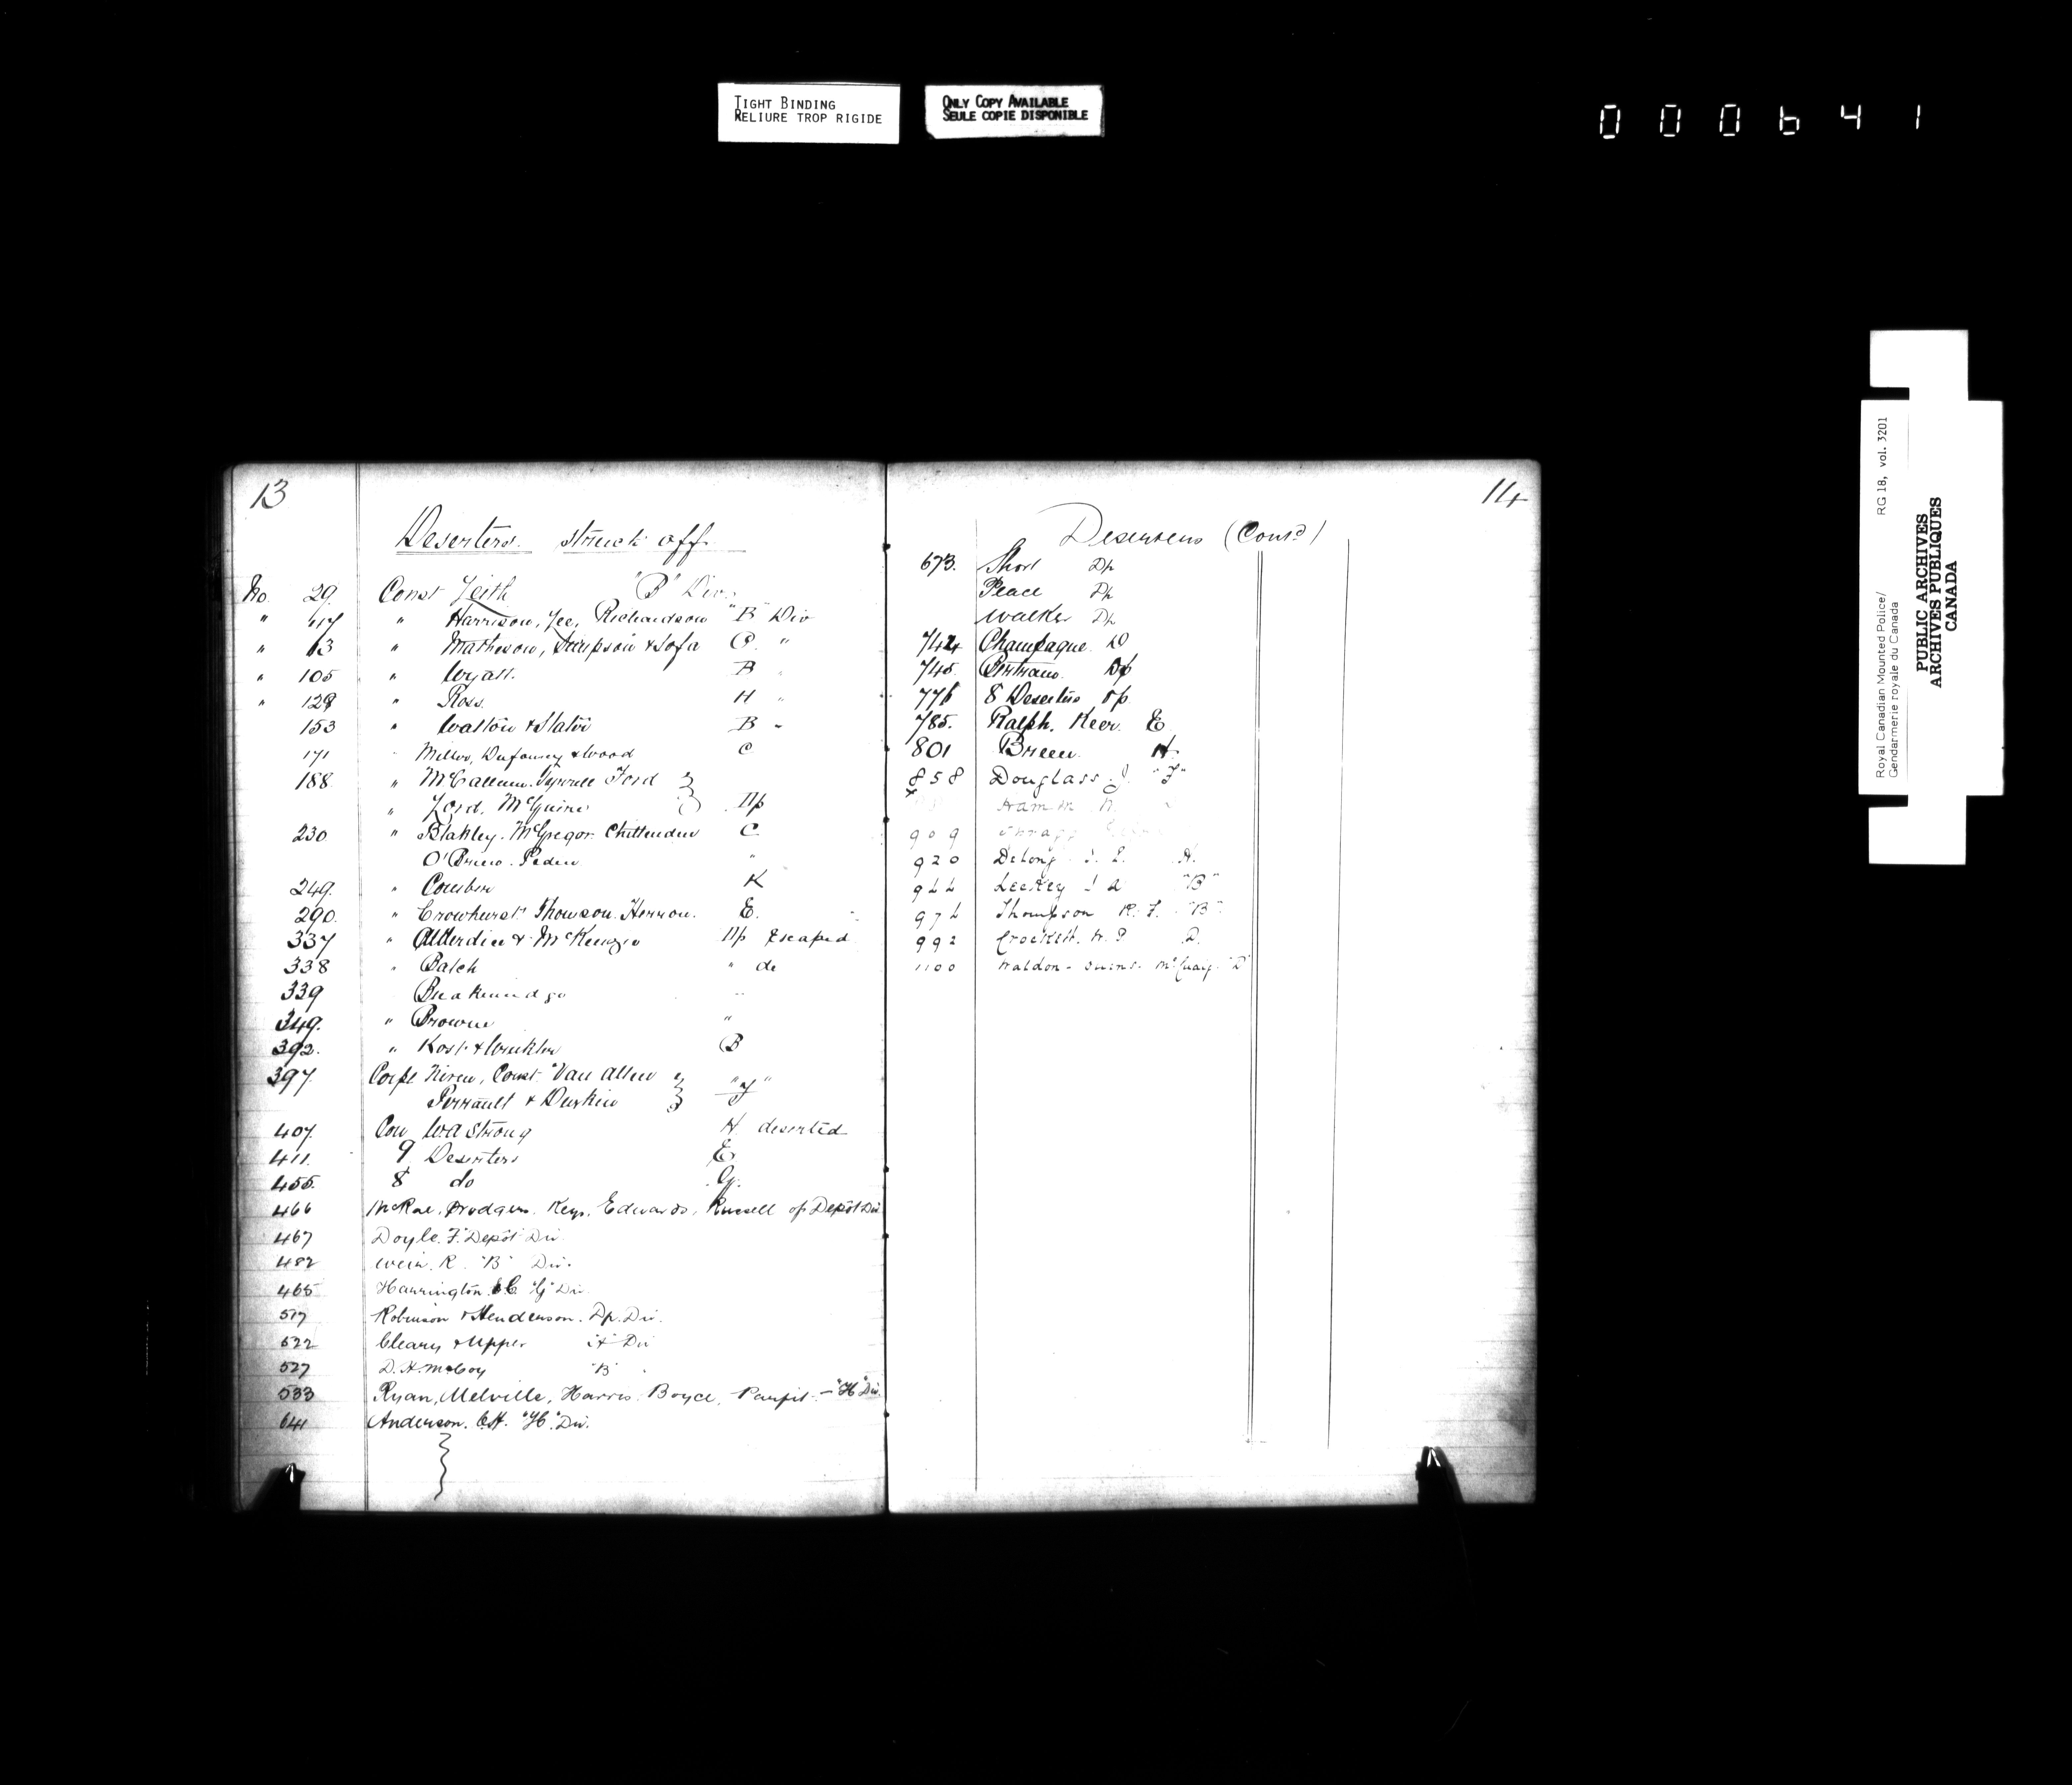 TIGHT BINDING
RELIURE TROP RIGIDE
ONLY COPY AVAILABLE
SEULE COPIE DISPONIBLE
000641
13
Deserters struck off
No 29. Const Leith "B" Div.
" 47 " Harrison, Yee, Richardson "B" Div
" 63 " Matheson, Simpson & C. "
" 105 " Wyatt. B "
" 129 " Ross. H "
153 " Walton & Slater B "
171 " Miller, & Wood C
188 " McCallum. Tyrrell Ford
" Lord. McGuire Dp
230 " Blakley. McGregor. Chittenden C
O'Brien. Peden "
249. " Comber K
290. " Crowhurst Thomson. Herron. E.
337 " & McKenzie Dp Escaped
338 " Balch " do
339 Breakenridge "
349. " Browne "
392. " Kost & Winkler B
397. Corpl Niven, Const. Van Allen
Perrault & Durkin
407. Con W.A Strong H deserted
411. 9 Deserters E
455. 8 do G.
466 McRae. Keys. Edwards, Russell of Depôt Div
467 Doyle. F. Depôt Div.
482 Weir. R. "B" Div.
465 Harrington "G" Div
517 Robinson & Henderson. Dp. Div.
522 Cleary & Upper Div
527 D. H. McCoy "B" "
533 Ryan, Melville, Harris. Boyce, — "H" Div.
641 Anderson. "H". Div.
14
Deserters (Contd)
673. Short Dp
Peace Dp
Walker Dp
744 Champagne D
745. Bertrand. Dp
776 8 Deserters Dp
785. Ralph. Keer. E
801 Breen. H
858 Douglass. J. "F"
Hamm
909
920 DeLong H.
944 Leckey J A "B"
974 Thompson R. F. "B"
992 Crockett. D.
1100 Waldon - McCuaig. "D"
Royal Canadian Mounted Police/
Gendarmerie royale du Canada
RG 18, vol. 3201
PUBLIC ARCHIVES
ARCHIVES PUBLIQUES
CANADA